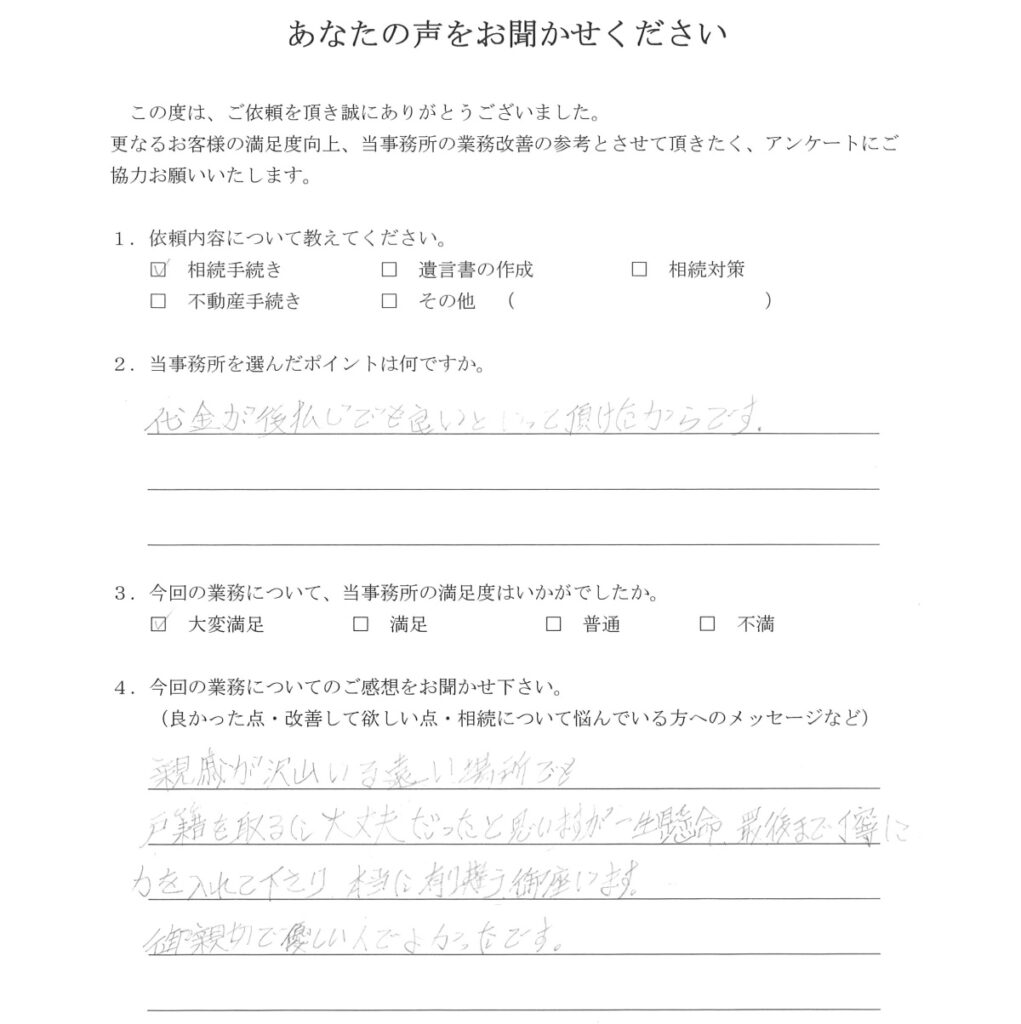 あなたの声をお聞かせください
この度は、ご依頼を頂き誠にありがとうございました。
更なるお客様の満足度向上、当事務所の業務改善の参考とさせて頂きたく、アンケートにご
協力お願いいたします。
1．依頼内容について教えてください。
☑ 相続手続き □ 遺言書の作成 □ 相続対策
□ 不動産手続き □ その他 （ ）
2．当事務所を選んだポイントは何ですか。
代金が後払いでも良いと って頂けたからです.
3．今回の業務について、当事務所の満足度はいかがでしたか。
☑ 大変満足 □ 満足 □ 普通 □ 不満
4．今回の業務についてのご感想をお聞かせ下さい。
（良かった点・改善して欲しい点・相続について悩んでいる方へのメッセージなど）
親戚が沢山いる遠い場所でも
戸籍を取るに大丈夫だったと思いますが一生懸命、最後まで 寧に
力を入れて下さり、本当に有り難う御座います。
御親切で優しい人でよかったです。